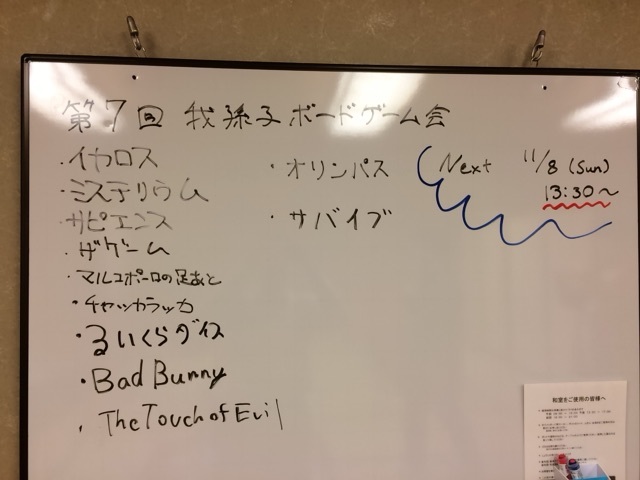 第7回 我孫子ボードゲーム会
・イカロス
・ミステリウム
・サピエンス
・ザゲーム
・マルコポーロの足あと
・チャッカラッカ
・るいくらダイス
・Bad Bunny
・The Touch of Evil
・オリンパス
・サバイブ
Next 11/8 (Sun)
13:30〜
和室をご使用の皆様へ